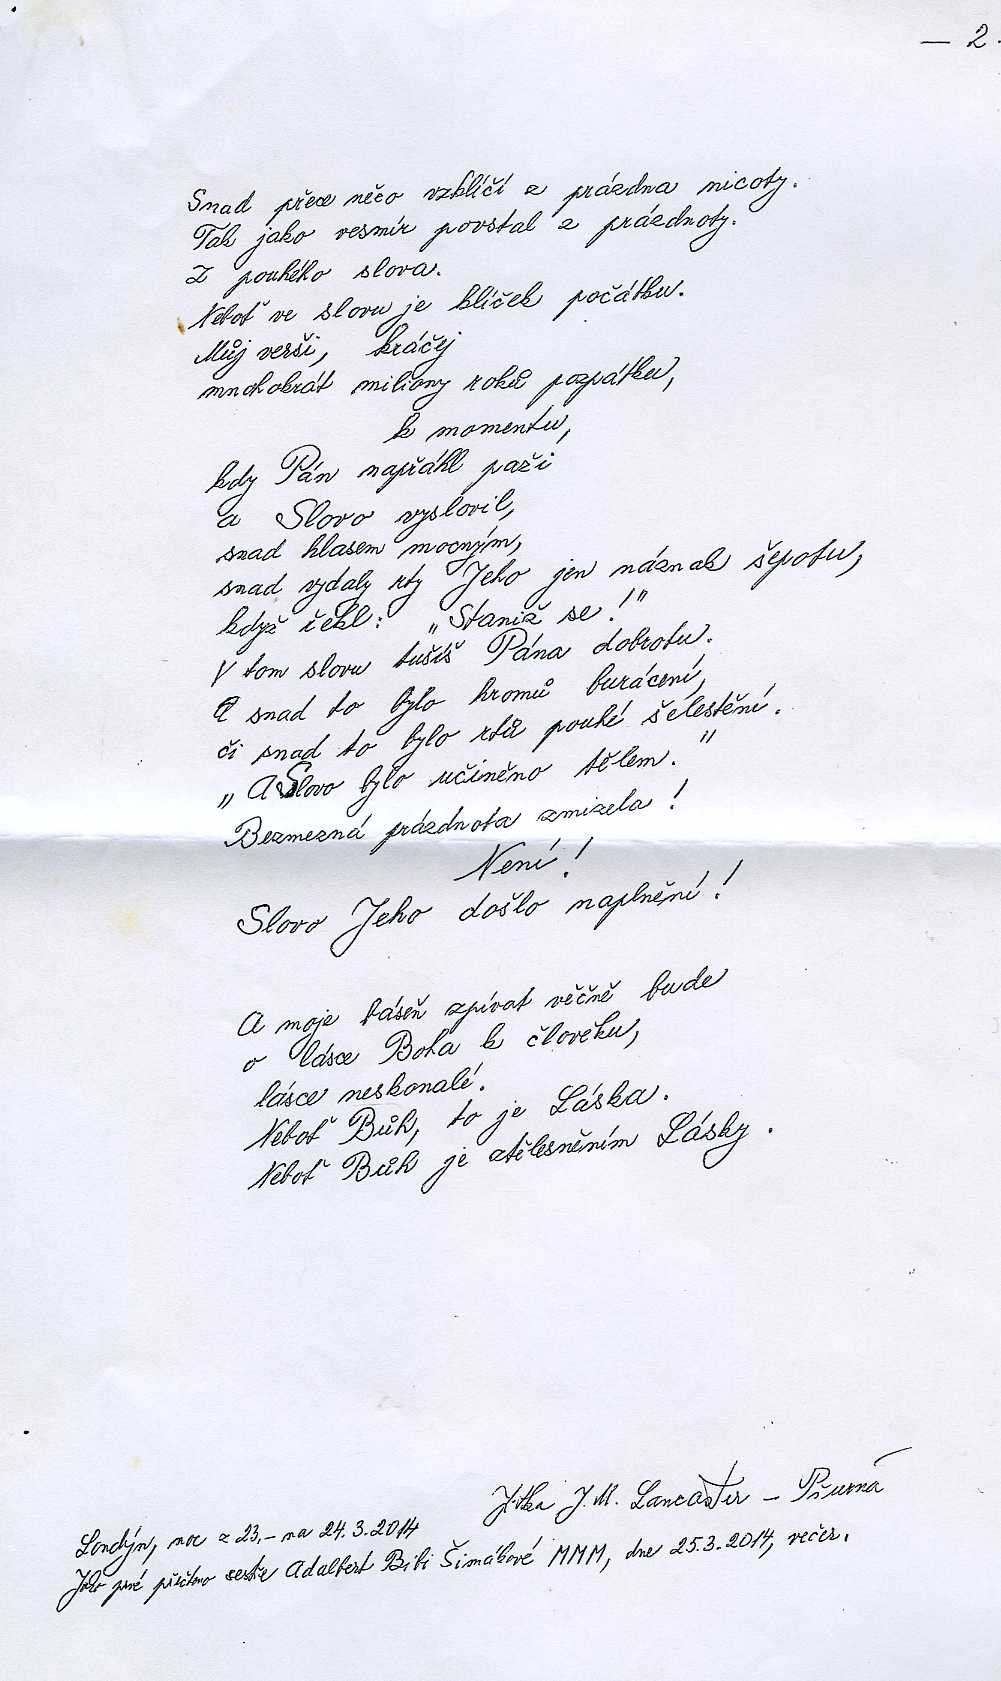 — 2.
Snad přece něco vzklíčí z prázdna nicoty.
Tak jako vesmír povstal z prázdnoty.
Z pouhého slova.
Neboť ve slovu je klíček počátku.
Můj verši, kráčej
mnohokrát miliony roků pozpátku,
k momentu,
kdy Pán napřáhl paži
a Slovo vyslovil,
snad hlasem mocným,
snad vydaly rty Jeho jen náznak šepotu,
když řekl: „Staniž se!"
V tom slovu tušíš Pána dobrotu.
A snad to bylo hromů burácení,
či snad to bylo rtů pouhé šelestění.
„A Slovo bylo učiněno tělem."
Bezmezná prázdnota zmizela!
Není!
Slovo Jeho došlo naplnění!
A moje báseň zpívat věčně bude
o lásce Boha k člověku,
lásce neskonalé.
Neboť Bůh, to je Láska.
Neboť Bůh je ztělesněním Lásky.
Jitka J. M. Lancaster –
Londýn, noc z 23.– na 24.3.2014
Jako prvé přečteno sestře Adalbert Bibi Šimákové MMM, dne 25.3.2014, večer.